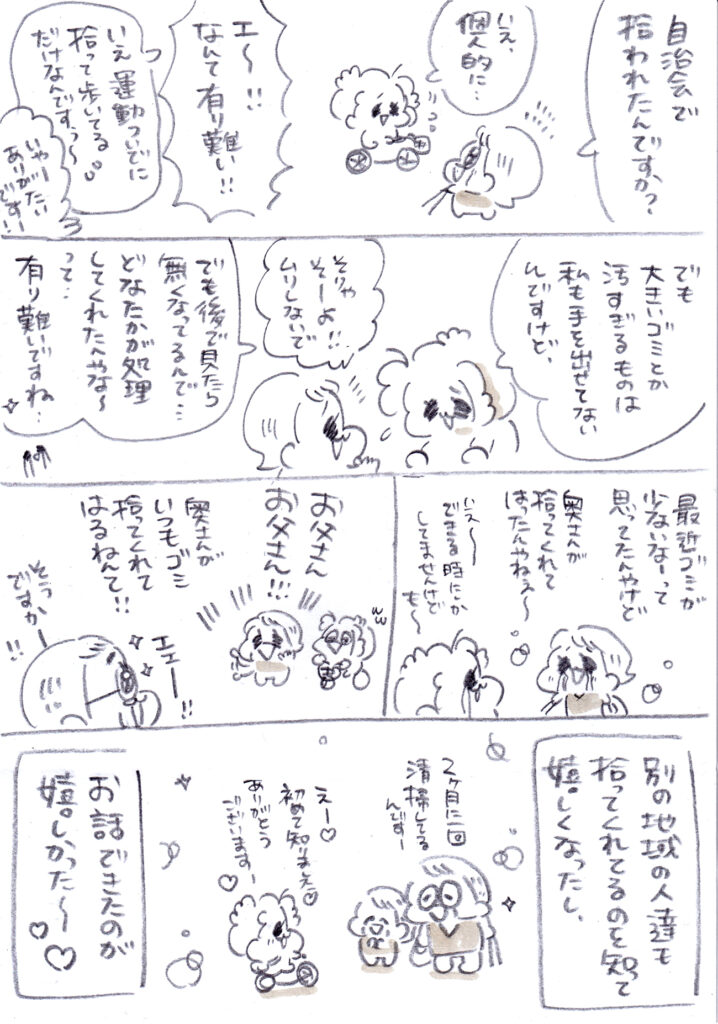 自治会で
拾われたんですか?
いえ、
個人的に…
エ〜!!
なんて有り難い!!
いえ運動ついでに
拾って歩いてる
だけなんですぅ〜
いやーたい
ありがたい
です!!
でも
大きいゴミとか
汚すぎるものは
私も手を出せてない
んですけど、
そりゃ
そーよ!!
ムリしないで
でも後で見たら
無くなってるんで…
どなたかが処理
してくれたんやな〜
って…
有り難いですね…
最近ゴミが
少ないなーって
思ってたんやけど
奥さんが
拾ってくれて
はったんやねぇ〜
いえ〜
できる時にしか
してませんけど
も〜
お父さん
お父さん!!!
奥さんが
いつもゴミ
拾ってくれて
はるねんて!!
エェー!!
そうっ
ですかー
!!
別の地域の人達も
拾ってくれてるのを知って
嬉しくなったし、
2ヶ月に一回
清掃してる
んですー
えー♡
初めて知りまえた
ありがとう
ございますー♡
お話できたのが
嬉しかった〜♡♡